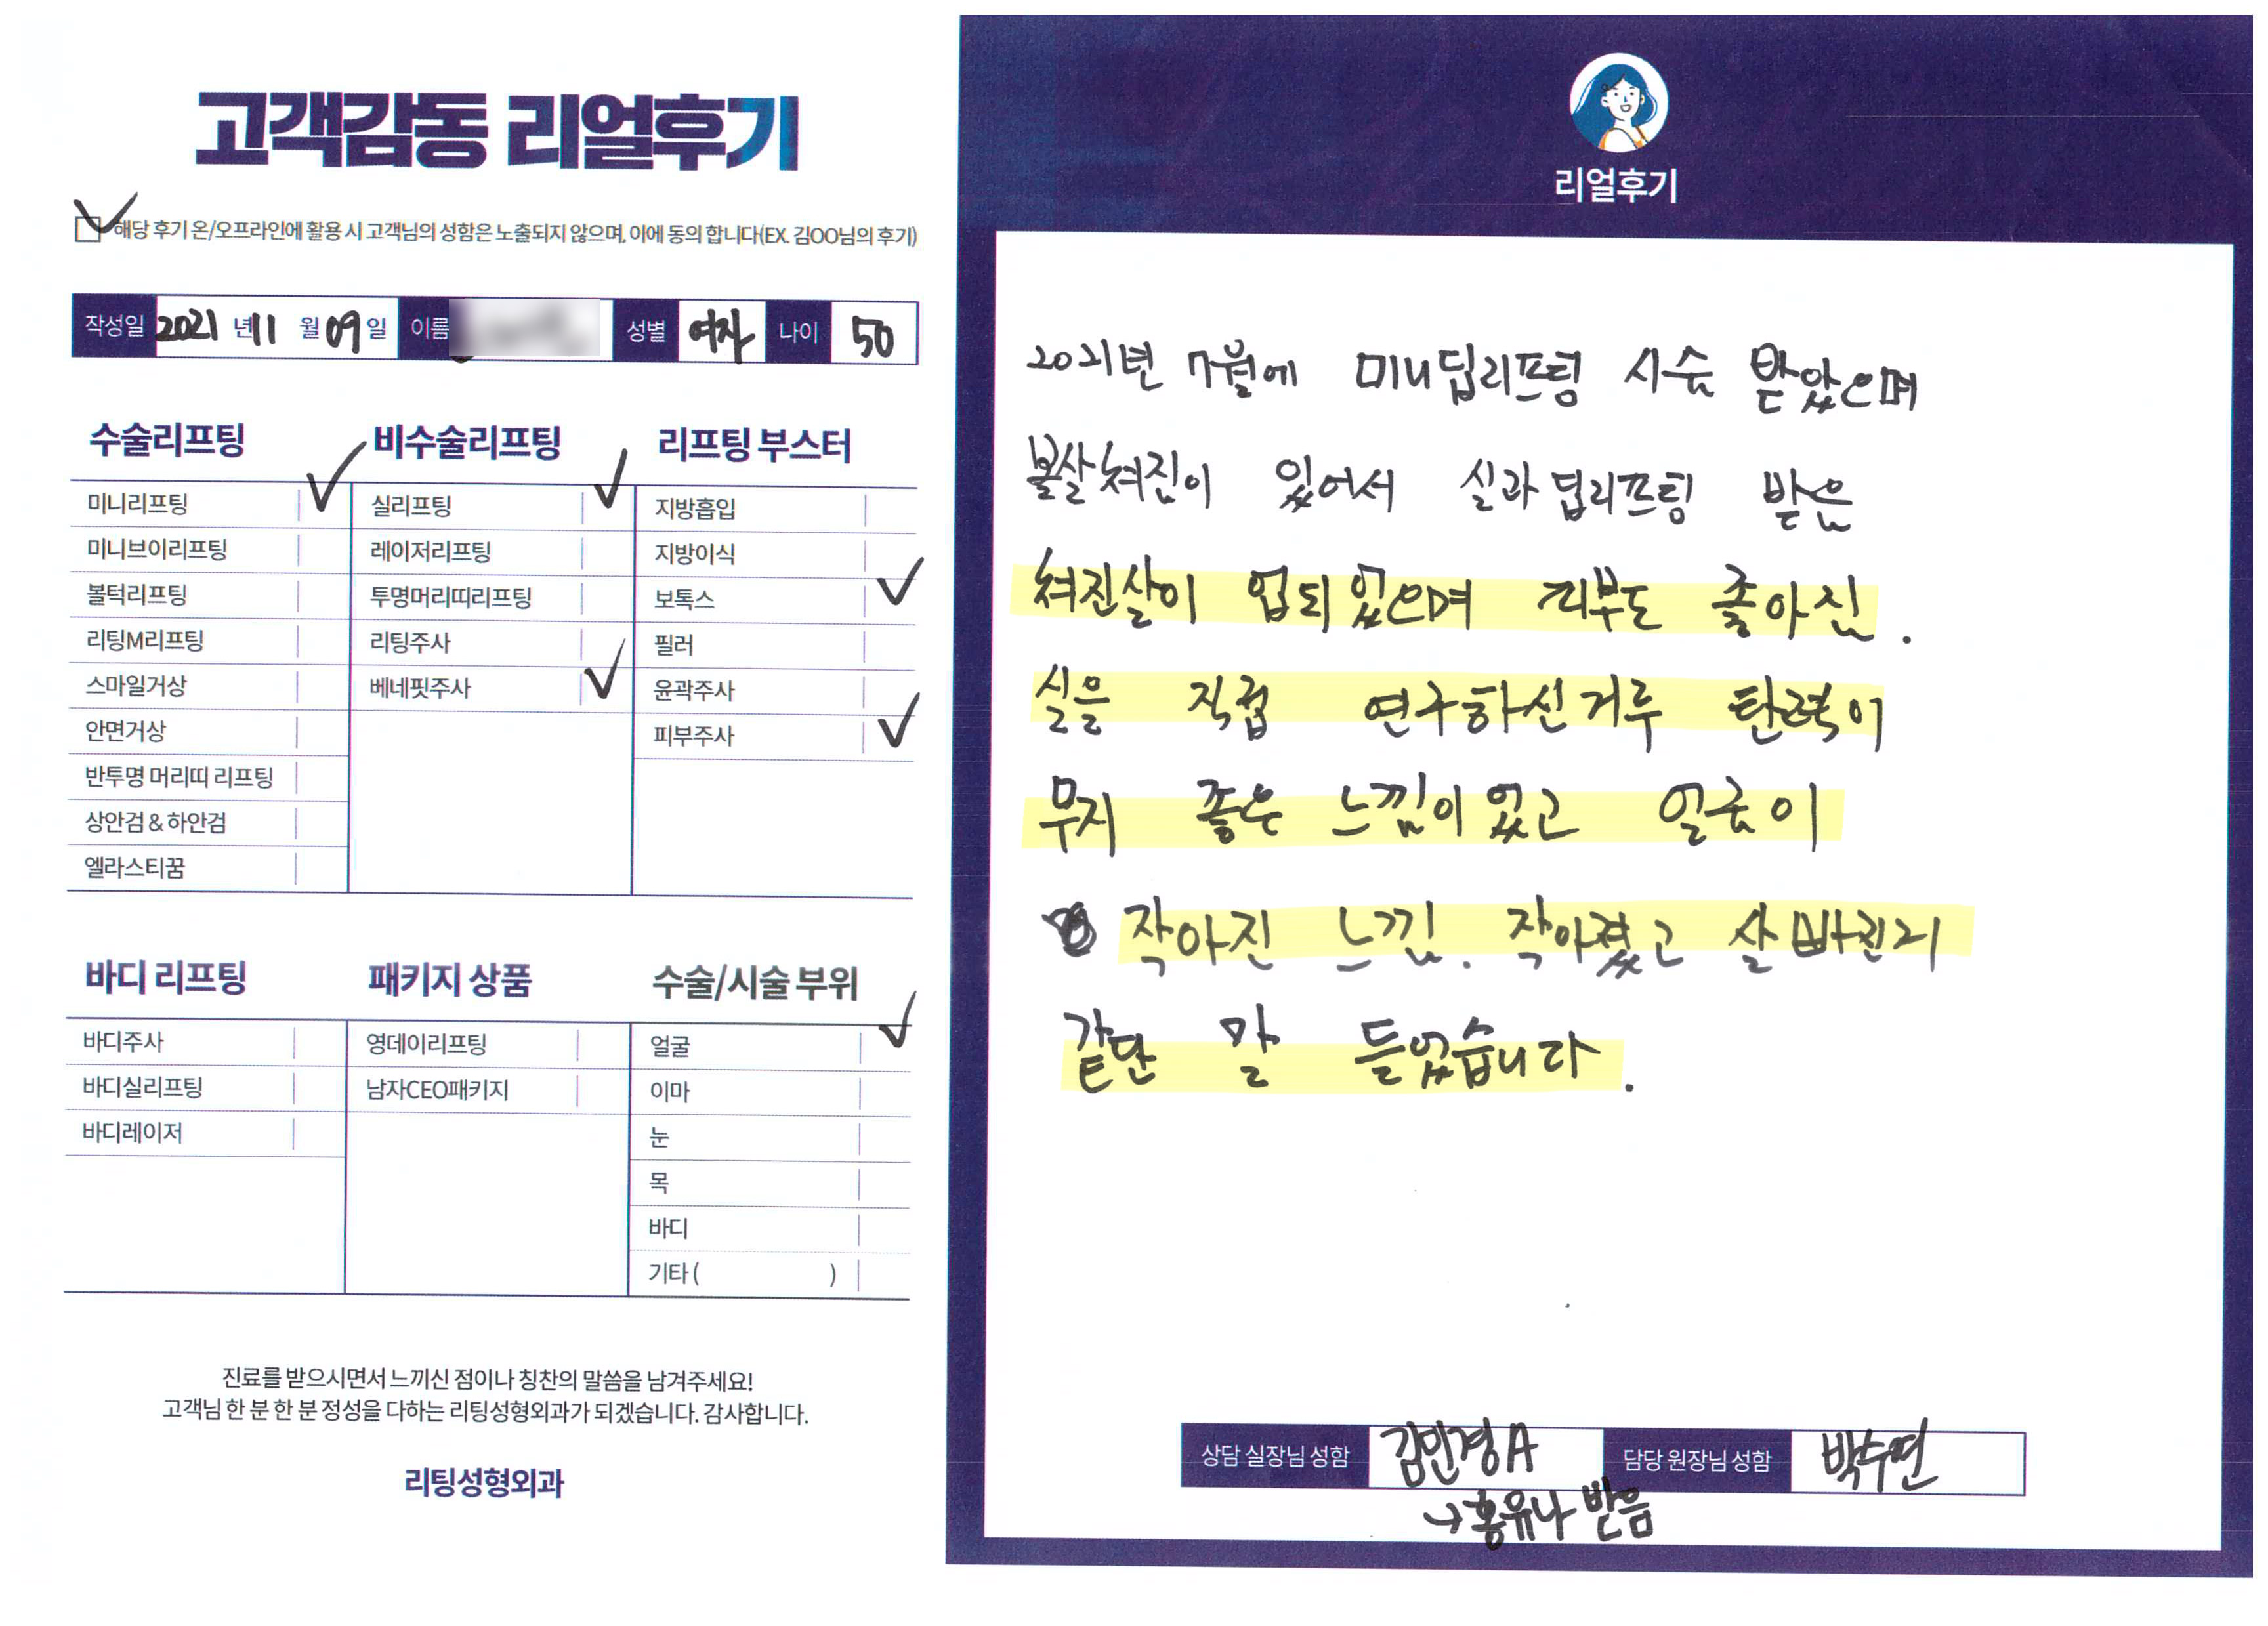 고객감동 리얼후기
해당 후기 온/오프라인에 활용 시 고객님의 성함은 노출되지 않으며, 이에 동의 합니다(EX. 김OO님의 후기)
작성일 2021 년 11 월 09 일 이름 성별 여자 나이 50
수술리프팅
미니리프팅
미니브이리프팅
볼턱리프팅
리팅M리프팅
스마일거상
안면거상
반투명 머리띠 리프팅
상안검 & 하안검
엘라스티꿈
비수술리프팅
실리프팅
레이저리프팅
투명머리띠리프팅
리팅주사
베네핏주사
리프팅 부스터
지방흡입
지방이식
보톡스
필러
윤곽주사
피부주사
바디 리프팅
바디주사
바디실리프팅
바디레이저
패키지 상품
영데이리프팅
남자CEO패키지
수술/시술 부위
얼굴
이마
눈
목
바디
기타 ( )
진료를 받으시면서 느끼신 점이나 칭찬의 말씀을 남겨주세요!
고객님 한 분 한 분 정성을 다하는 리팅성형외과가 되겠습니다. 감사합니다.
리팅성형외과
리얼후기
2021년 7월에 미니딥리프팅 시술 받았으며
볼살쳐짐이 있어서 실과 딥리프팅 받은
쳐진살이 업되있으며 피부도 좋아진.
실을 직접 연구하신거루 탄력이
무지 좋은 느낌이었고 얼굴이
작아진 느낌. 작아졌고 살빠진거
같단 말 들었습니다.
상담 실장님 성함 김민경A
담당 원장님 성함 박수연
→홍유나 받음